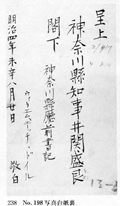 呈上
神奈川縣知事井関盛艮
閣下
神奈川縣廳前書記
明治四年未辛八月廿日
敬白
238 No.198写真台紙裏